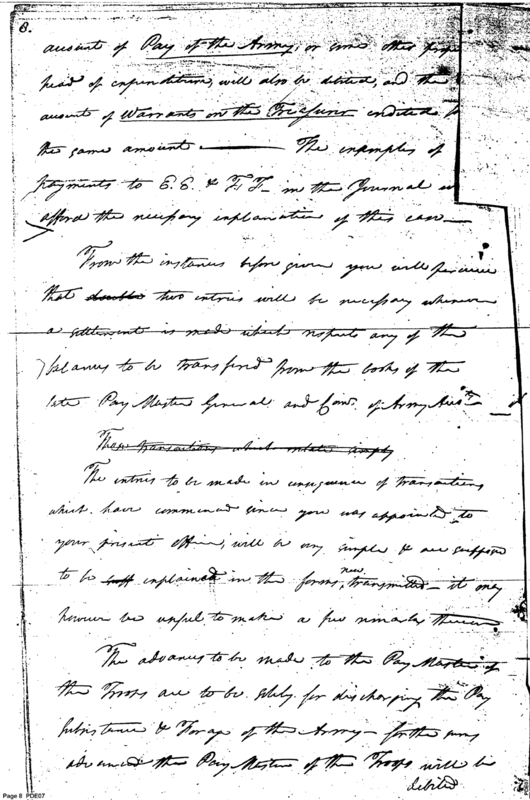 8.
account of Pay of the Army, or some other prop
head of expenditure, will also be debited, and the
account of Warrants on the Treasurer credited
the same amount — The examples of
payments to E.E. & F.F. in the Journal w
afford the necessary explanation of this case —
From the instances before given you will perceive
that double two entries will be necessary whenever
a settlement is made which respects any of the
balances to be transfered from the books of the
late Pay Master General and Com. of Army Accts.
Those transactions which relate simply
The entries to be made in consequence of transactions
which have commenced since you was appointed to
your present office, will be very simple & are suppose
to be suff explained in the forms now transmitted — it may
however be useful to make a few remarks thereon
The advances to be made to the Pay Master of
the Troops are to be solely for discharging the Pay
Subsistence & Forage of the Army — for the sums
advanced the Pay Master of the Troops will be
debited
Page 8 PDE07